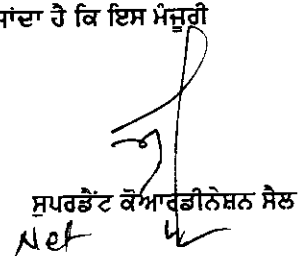 ਜਾਂਦਾ ਹੈ ਕਿ ਇਸ ਮੰਜੂਰੀ
ਸੁਪਰਡੈਂਟ ਕੋਆਰਡੀਨੇਸ਼ਨ ਸੈਲ